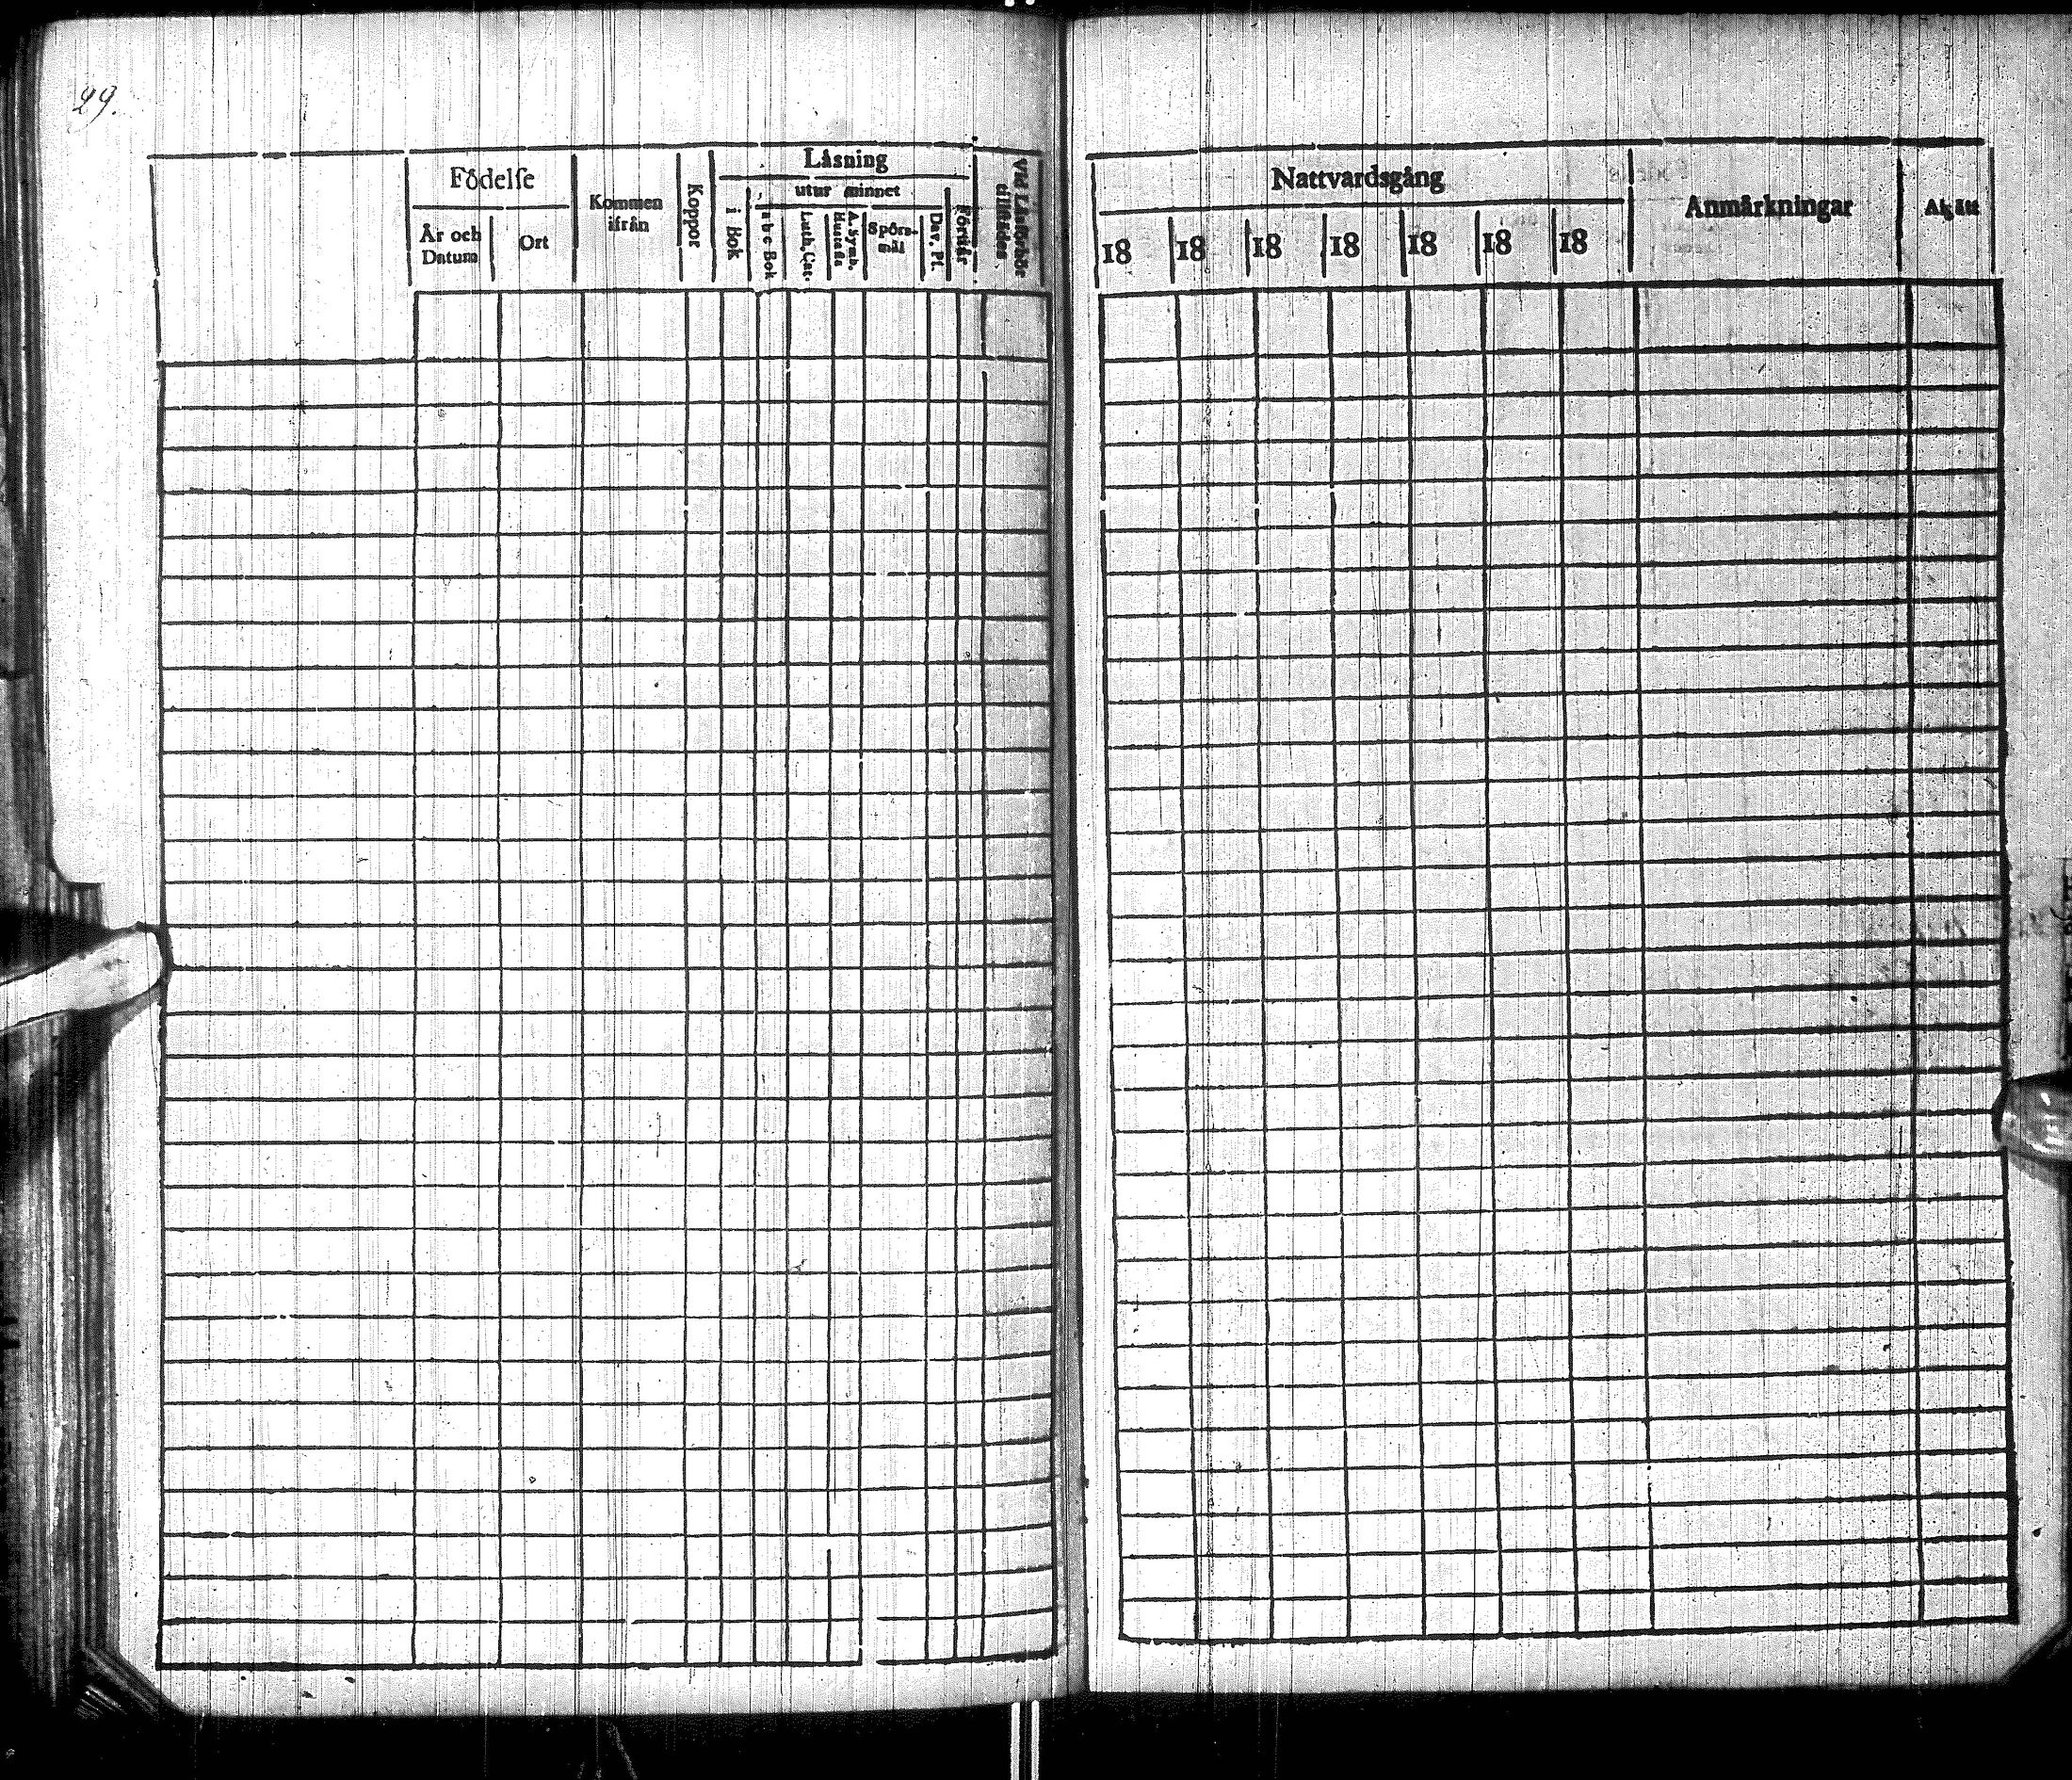 29.
Födelse
År och
Datum
Ort
Kommen
ifrån
Koppor
Låsning
i Bok
utur minnet
a b c Bok
Luth. Cat.
A. Symb.
Hustafla
Spörs-
mål
Dav. Pf.
Förstår
Vid Låsförhör
tillstädes
Nattvardsgång
18 18 18 18 18 18 18
Anmårkningar
Afgått